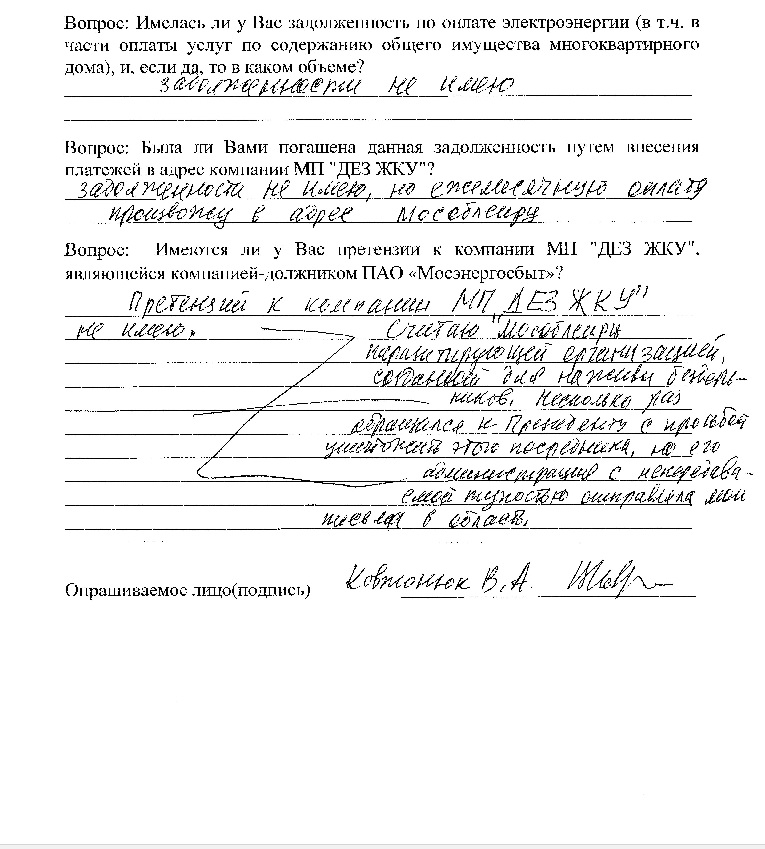 Вопрос: Имелась ли у Вас задолженность по оплате электроэнергии (в т.ч. в
части оплаты услуг по содержанию общего имущества многоквартирного
дома), и, если да, то в каком объеме?
задолженности не имею
Вопрос: Была ли Вами погашена данная задолженность путем внесения
платежей в адрес компании МП "ДЕЗ ЖКУ"?
задолженности не имею, но ежемесячную оплату
произвожу в адрес Мособлеирц
Вопрос: Имеются ли у Вас претензии к компании МП "ДЕЗ ЖКУ",
являющейся компанией-должником ПАО «Мосэнергосбыт»?
Претензий к компании МП "ДЕЗ ЖКУ"
не имею. Считаю "Мособлеирц
паразитирующей организацией,
созданной для наживы бездель-
ников. Несколько раз
обращался к Президенту с просьбой
уничтожить этого посредника, но его
администрация с непередава-
емой тупостью отправляла мои
письма в область.
Опрашиваемое лицо(подпись) Ковтонюк В.А.